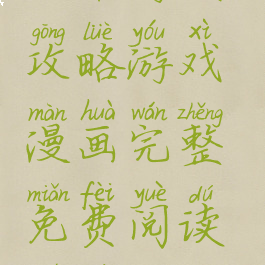 gōng lüè yóu xì
攻略游戏
màn huà wán zhěng
漫画完整
miǎn fèi yuè dú
免费阅读